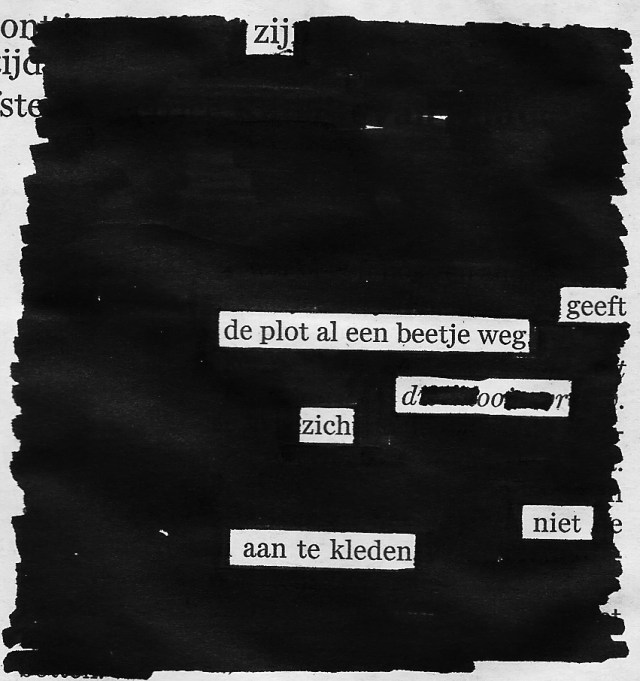 ont
zij
tijd
ste
geeft
de plot al een beetje weg
d oo r
zich
niet
aan te kleden